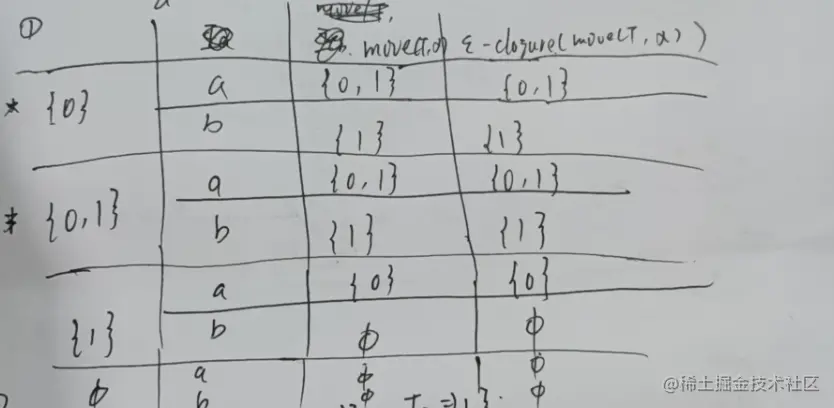 ①
move(T,α) ε-closure(move(T,α))
* {0} a {0,1} {0,1}
b {1} {1}
* {0,1} a {0,1} {0,1}
b {1} {1}
{1} a {0} {0}
b ϕ ϕ
ϕ a ϕ ϕ
b ϕ ϕ
@稀土掘金技术社区